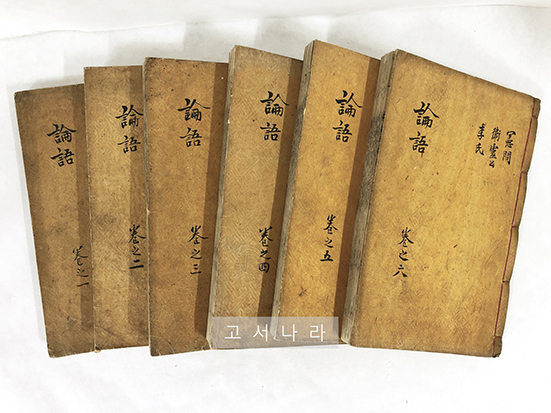 論語
卷之一
論語
卷之二
論語
卷之三
論語
卷之四
論語
卷之五
論語
卷之六
憲問
衛靈公
季氏
고서나라